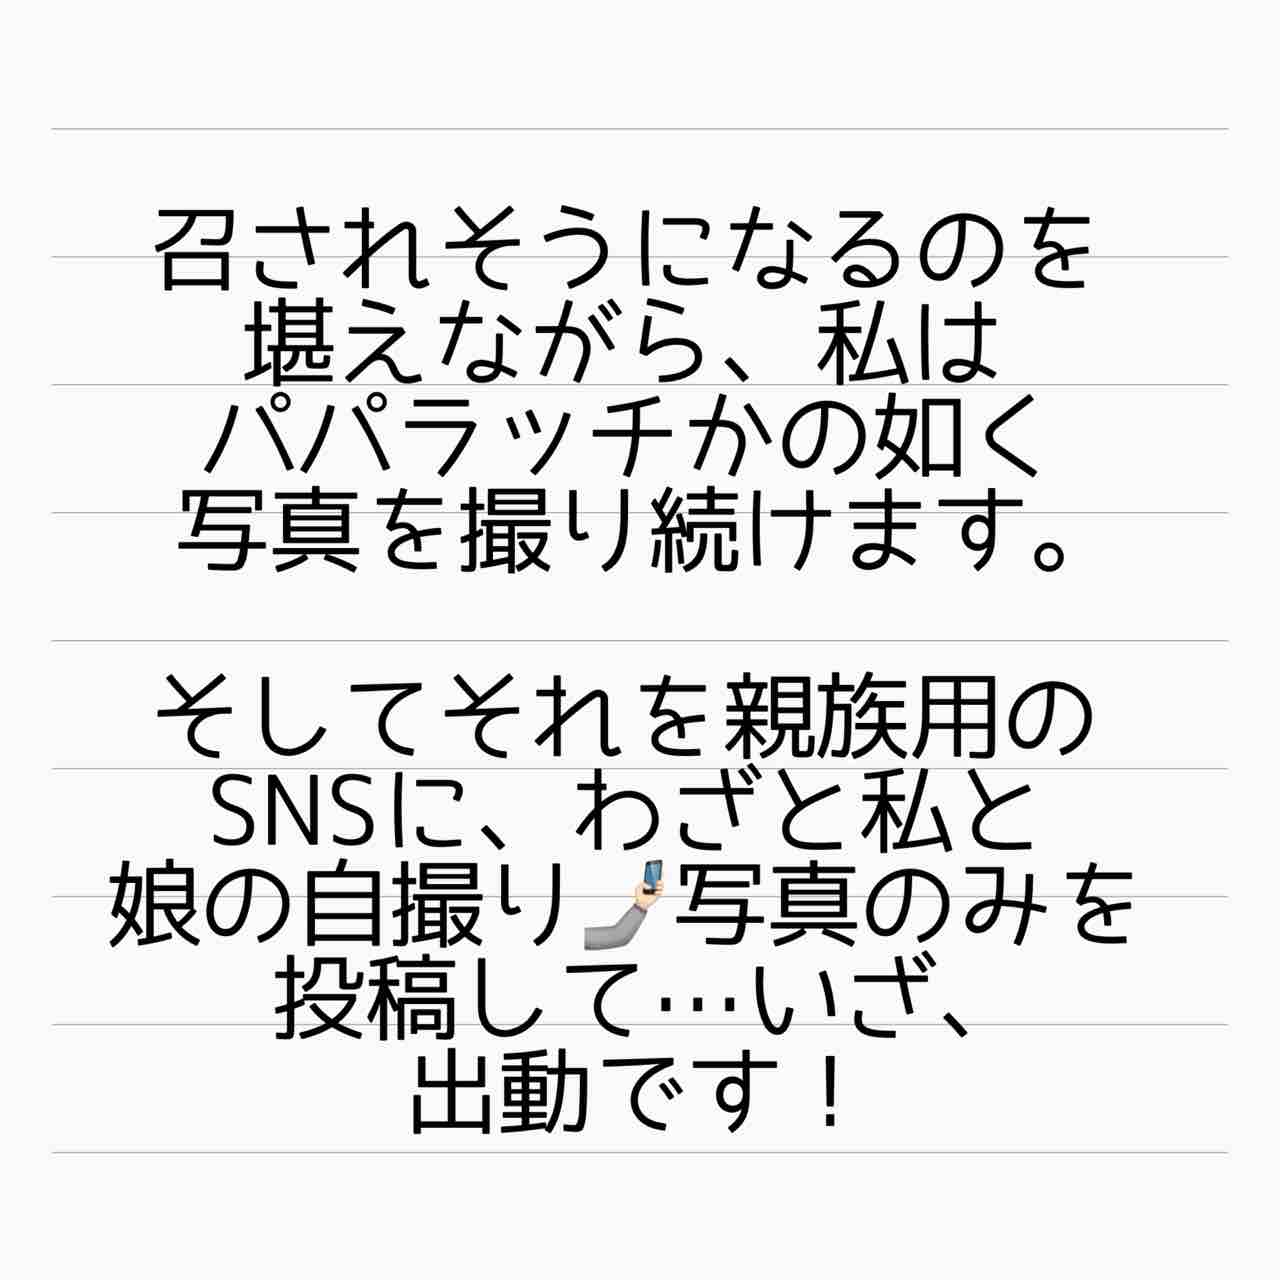 召されそうになるのを
堪えながら、私は
パパラッチかの如く
写真を撮り続けます。
そしてそれを親族用の
SNSに、わざと私と
娘の自撮り🤳🏻写真のみを
投稿して…いざ、
出動です！